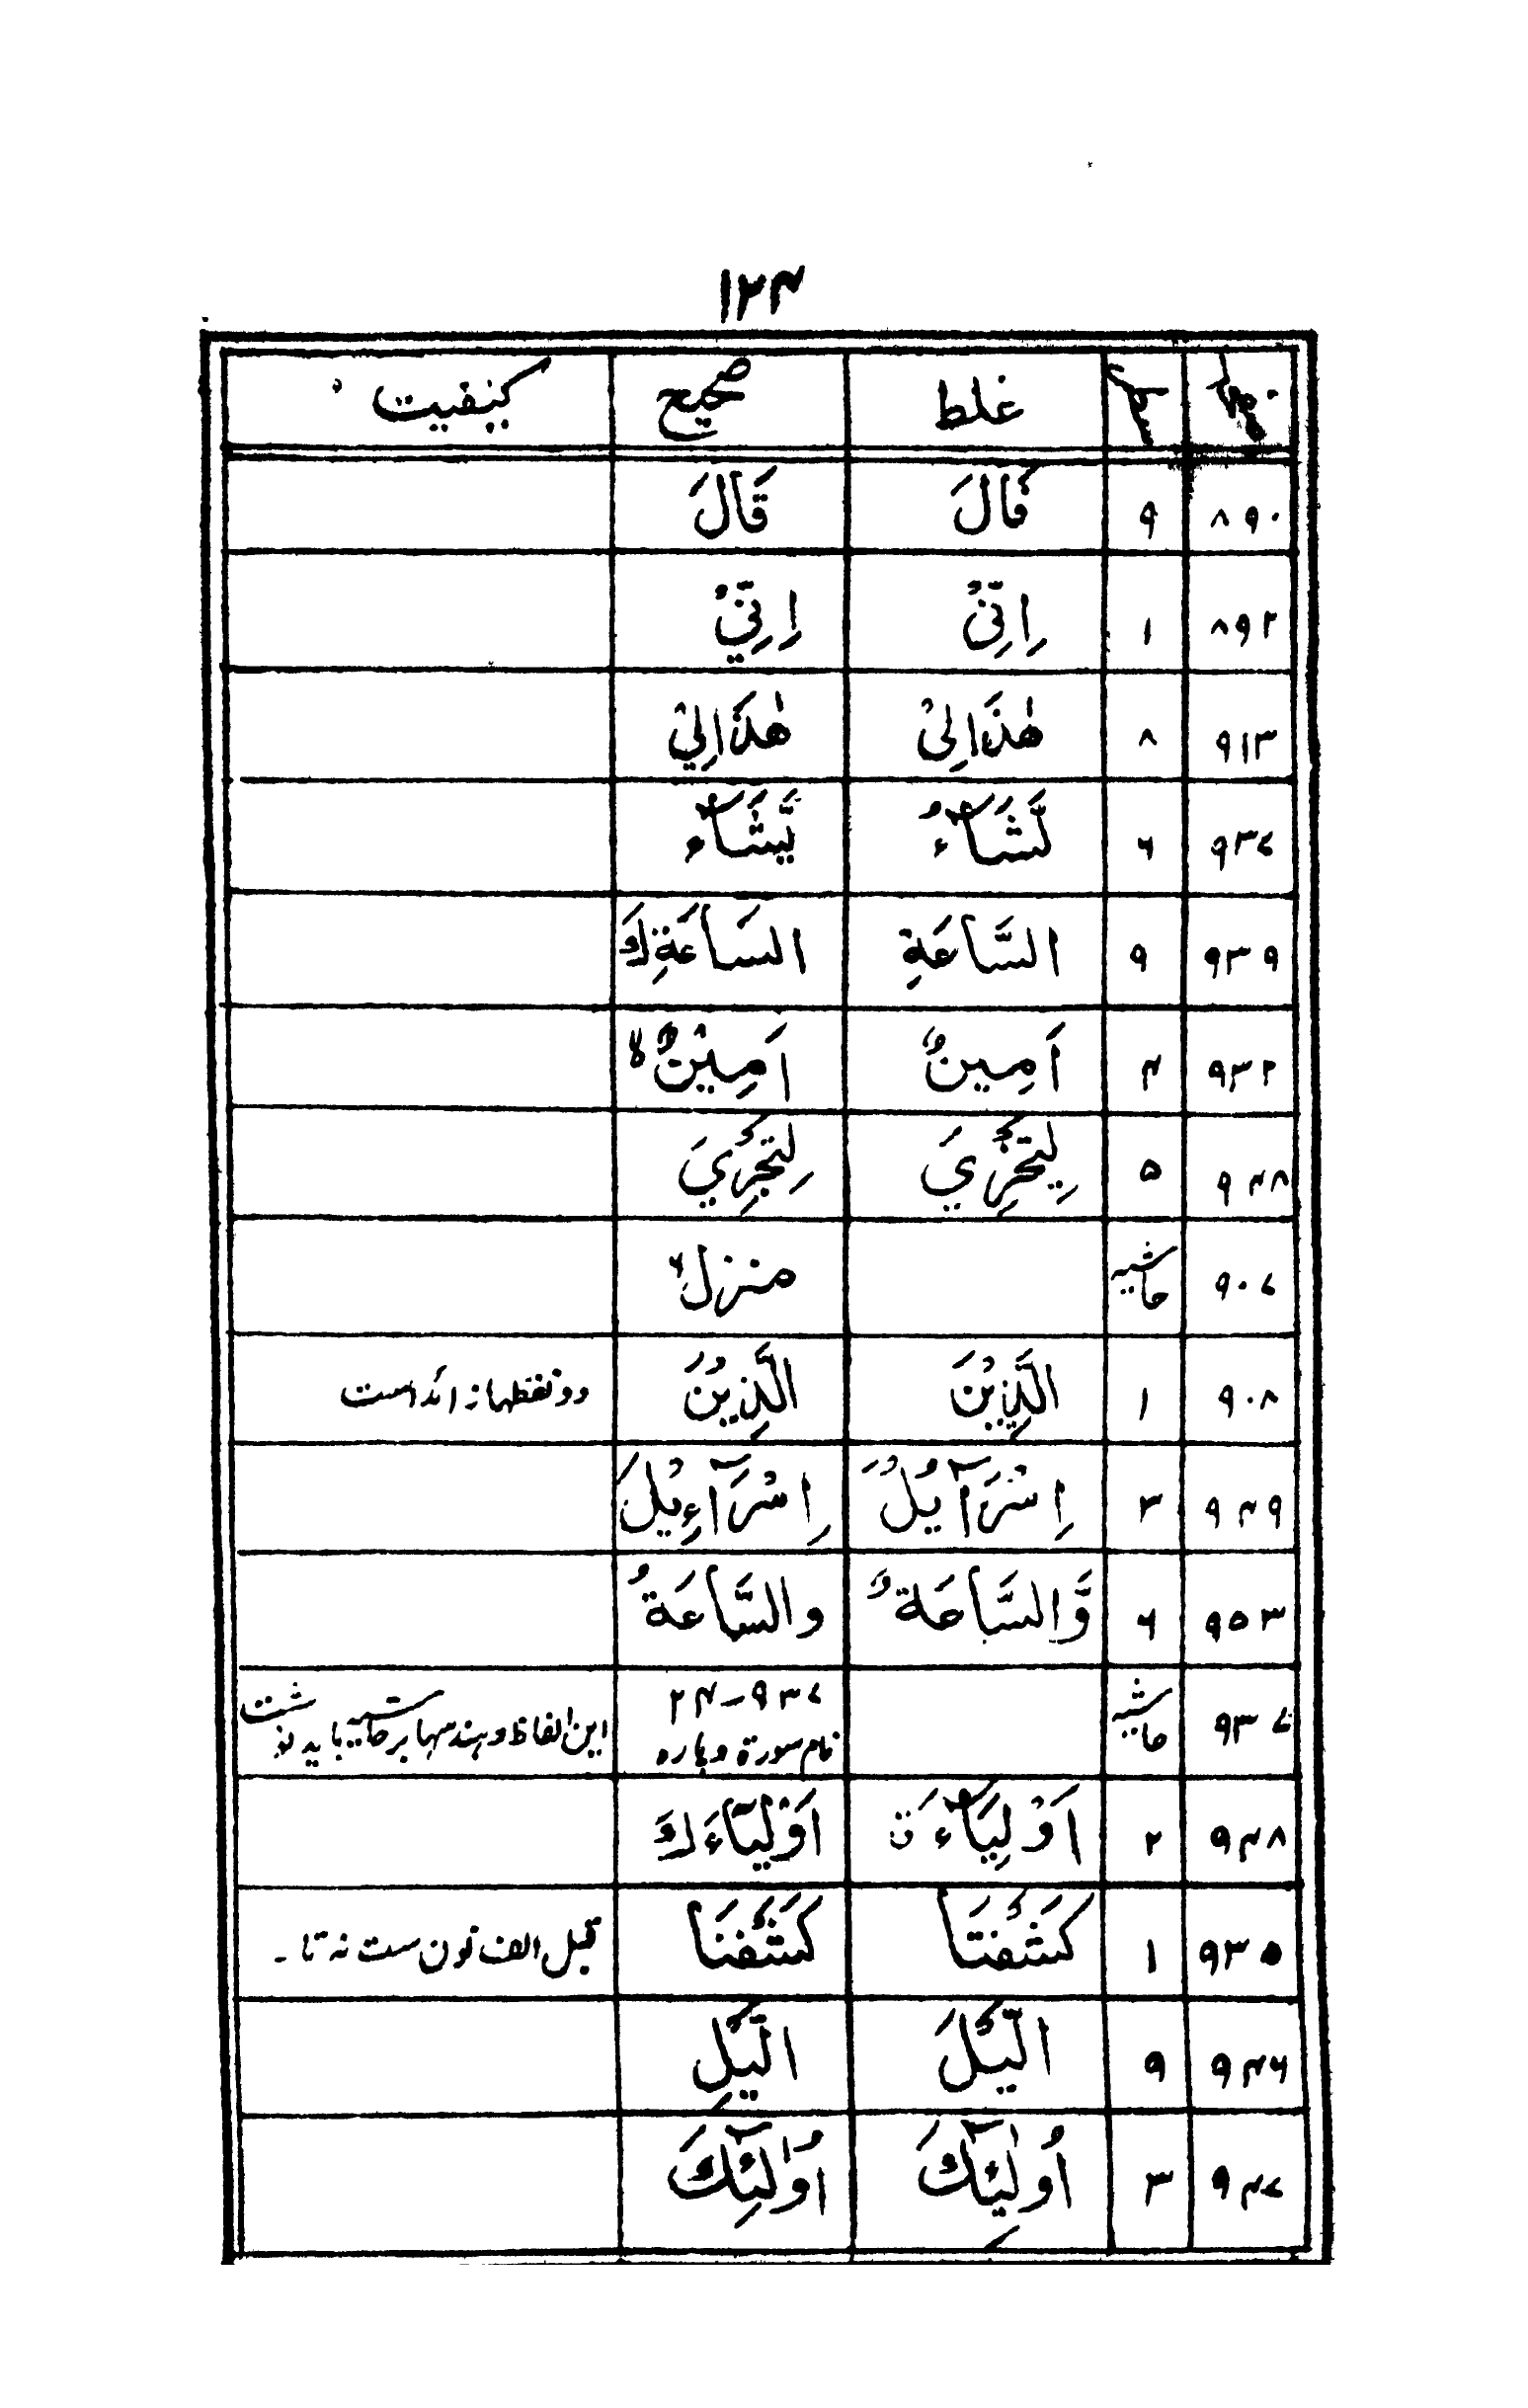 ۱۲۴
صفحہ سطر غلط صحیح کیفیت
۸۹۰ ۹ فَالَ قَالَ
۸۹۲ ۱ اِنِّیْ اِنِّيْ
۹۱۳ ۸ هٰذَا لِیْ هٰذَا لِيْ
۹۳۷ ۶ لَّشَآءُ يَّشَآء
۹۳۹ ۹ السَّاعَةِ السَاعَةِ ك
۹۳۲ ۴ اَمِينٌ اَمِيْنٌ لا
۹۴۸ ۵ لِيَخْزِيَ لِتَجْرِيَ
۹۰۷ حاشیہ منزل ۶
۹۰۸ ۱ الَّذِيْنَ الَّذِيْنَ دو نقطہا زائد است
۹۴۹ ۳ اِسْرَآيُلْ اِسْرَآءِيْلَ
۹۵۳ ۶ وَّالسَّاحَةُ والسَّاعَةُ
۹۳۷ حاشیہ ۹۳۷-۲۴
نام سورة و پاره این الفاظ و ہندسہا بر حاشیہ باید نوشت
۹۴۸ ۲ اَوْلِيَآءَ ق اَوْلِيَآءَ ك
۹۳۵ ۱ كَشَفْتَا كَشَفْنَا قبل الف نون ست نہ تا ۔
۹۴۶ ۹ الَّيْلَ الَّيْلِ
۹۴۷ ۳ اُولٰٓئِكَ اُولٰٓئِكَ